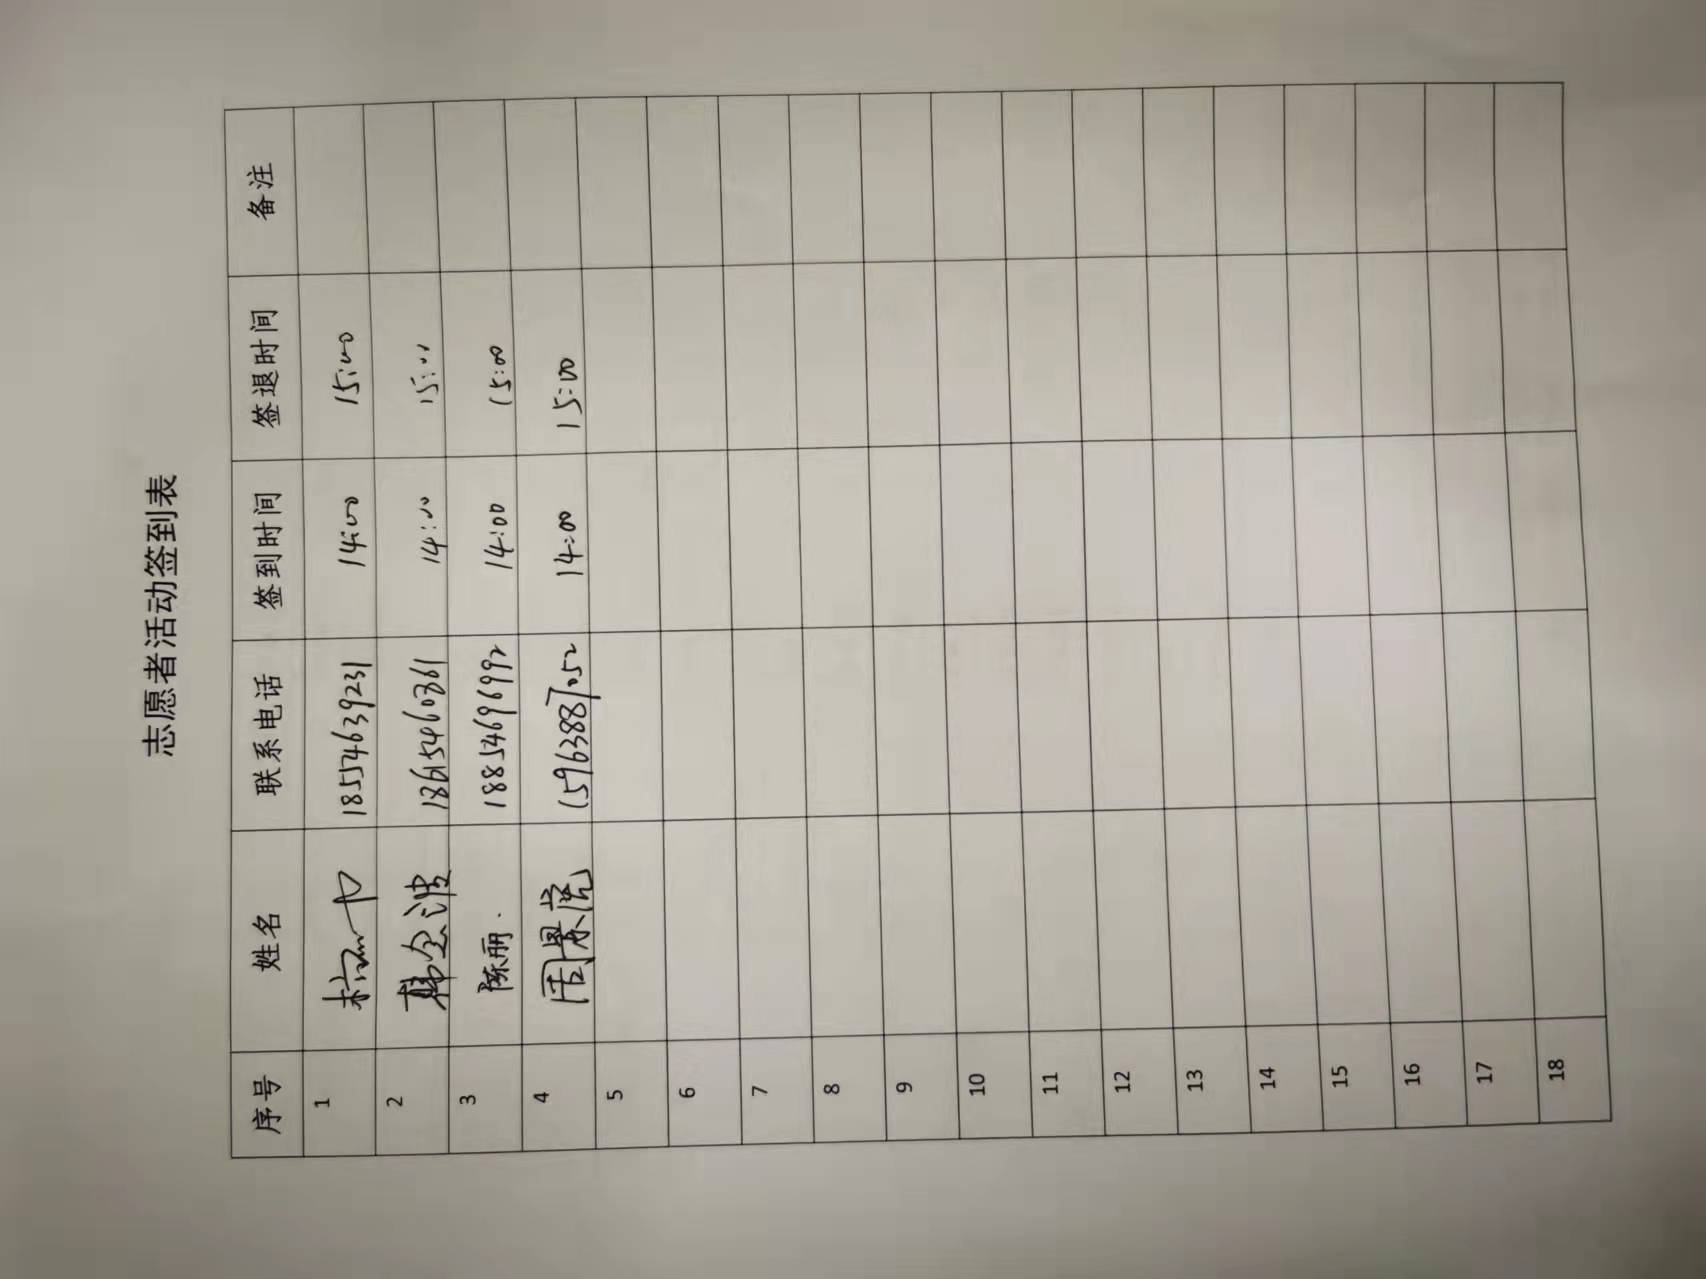 志愿者活动签到表
序号 姓名 联系电话 签到时间 签退时间 备注
1 18554639231 14:00 15:00
2 韩念波 18615460361 14:00 15:00
3 陈丽. 18854696992 14:00 15:00
4 周景党 15963887052 14:00 15:00
5
6
7
8
9
10
11
12
13
14
15
16
17
18